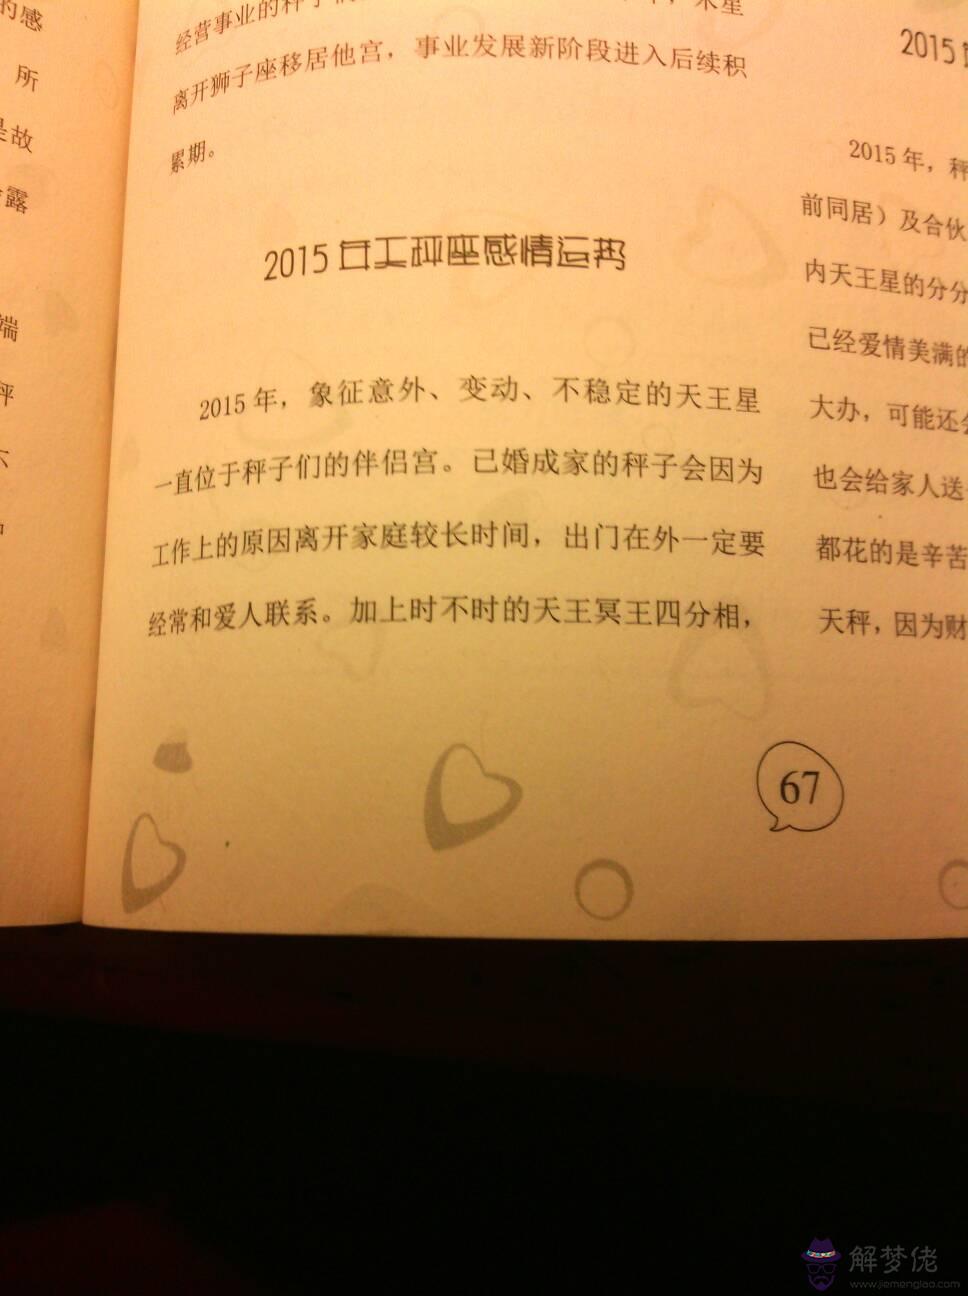 的感
所
是故
露
端
秤
经营事业的秤子们
木星
离开狮子座移居他宫，事业发展新阶段进入后续积
累期。
2015年天秤座感情运势
2015年，象征意外、变动、不稳定的天王星
一直位于秤子们的伴侣宫。已婚成家的秤子会因为
工作上的原因离开家庭较长时间，出门在外一定要
经常和爱人联系。加上时不时的天王冥王四分相，
67
2015
2015年，秤
前同居）及合伙
内天王星的分分
已经爱情美满的
大办，可能还会
也会给家人送
都花的是辛苦
天秤，因为财
解梦佬
www.jiemenglao.com